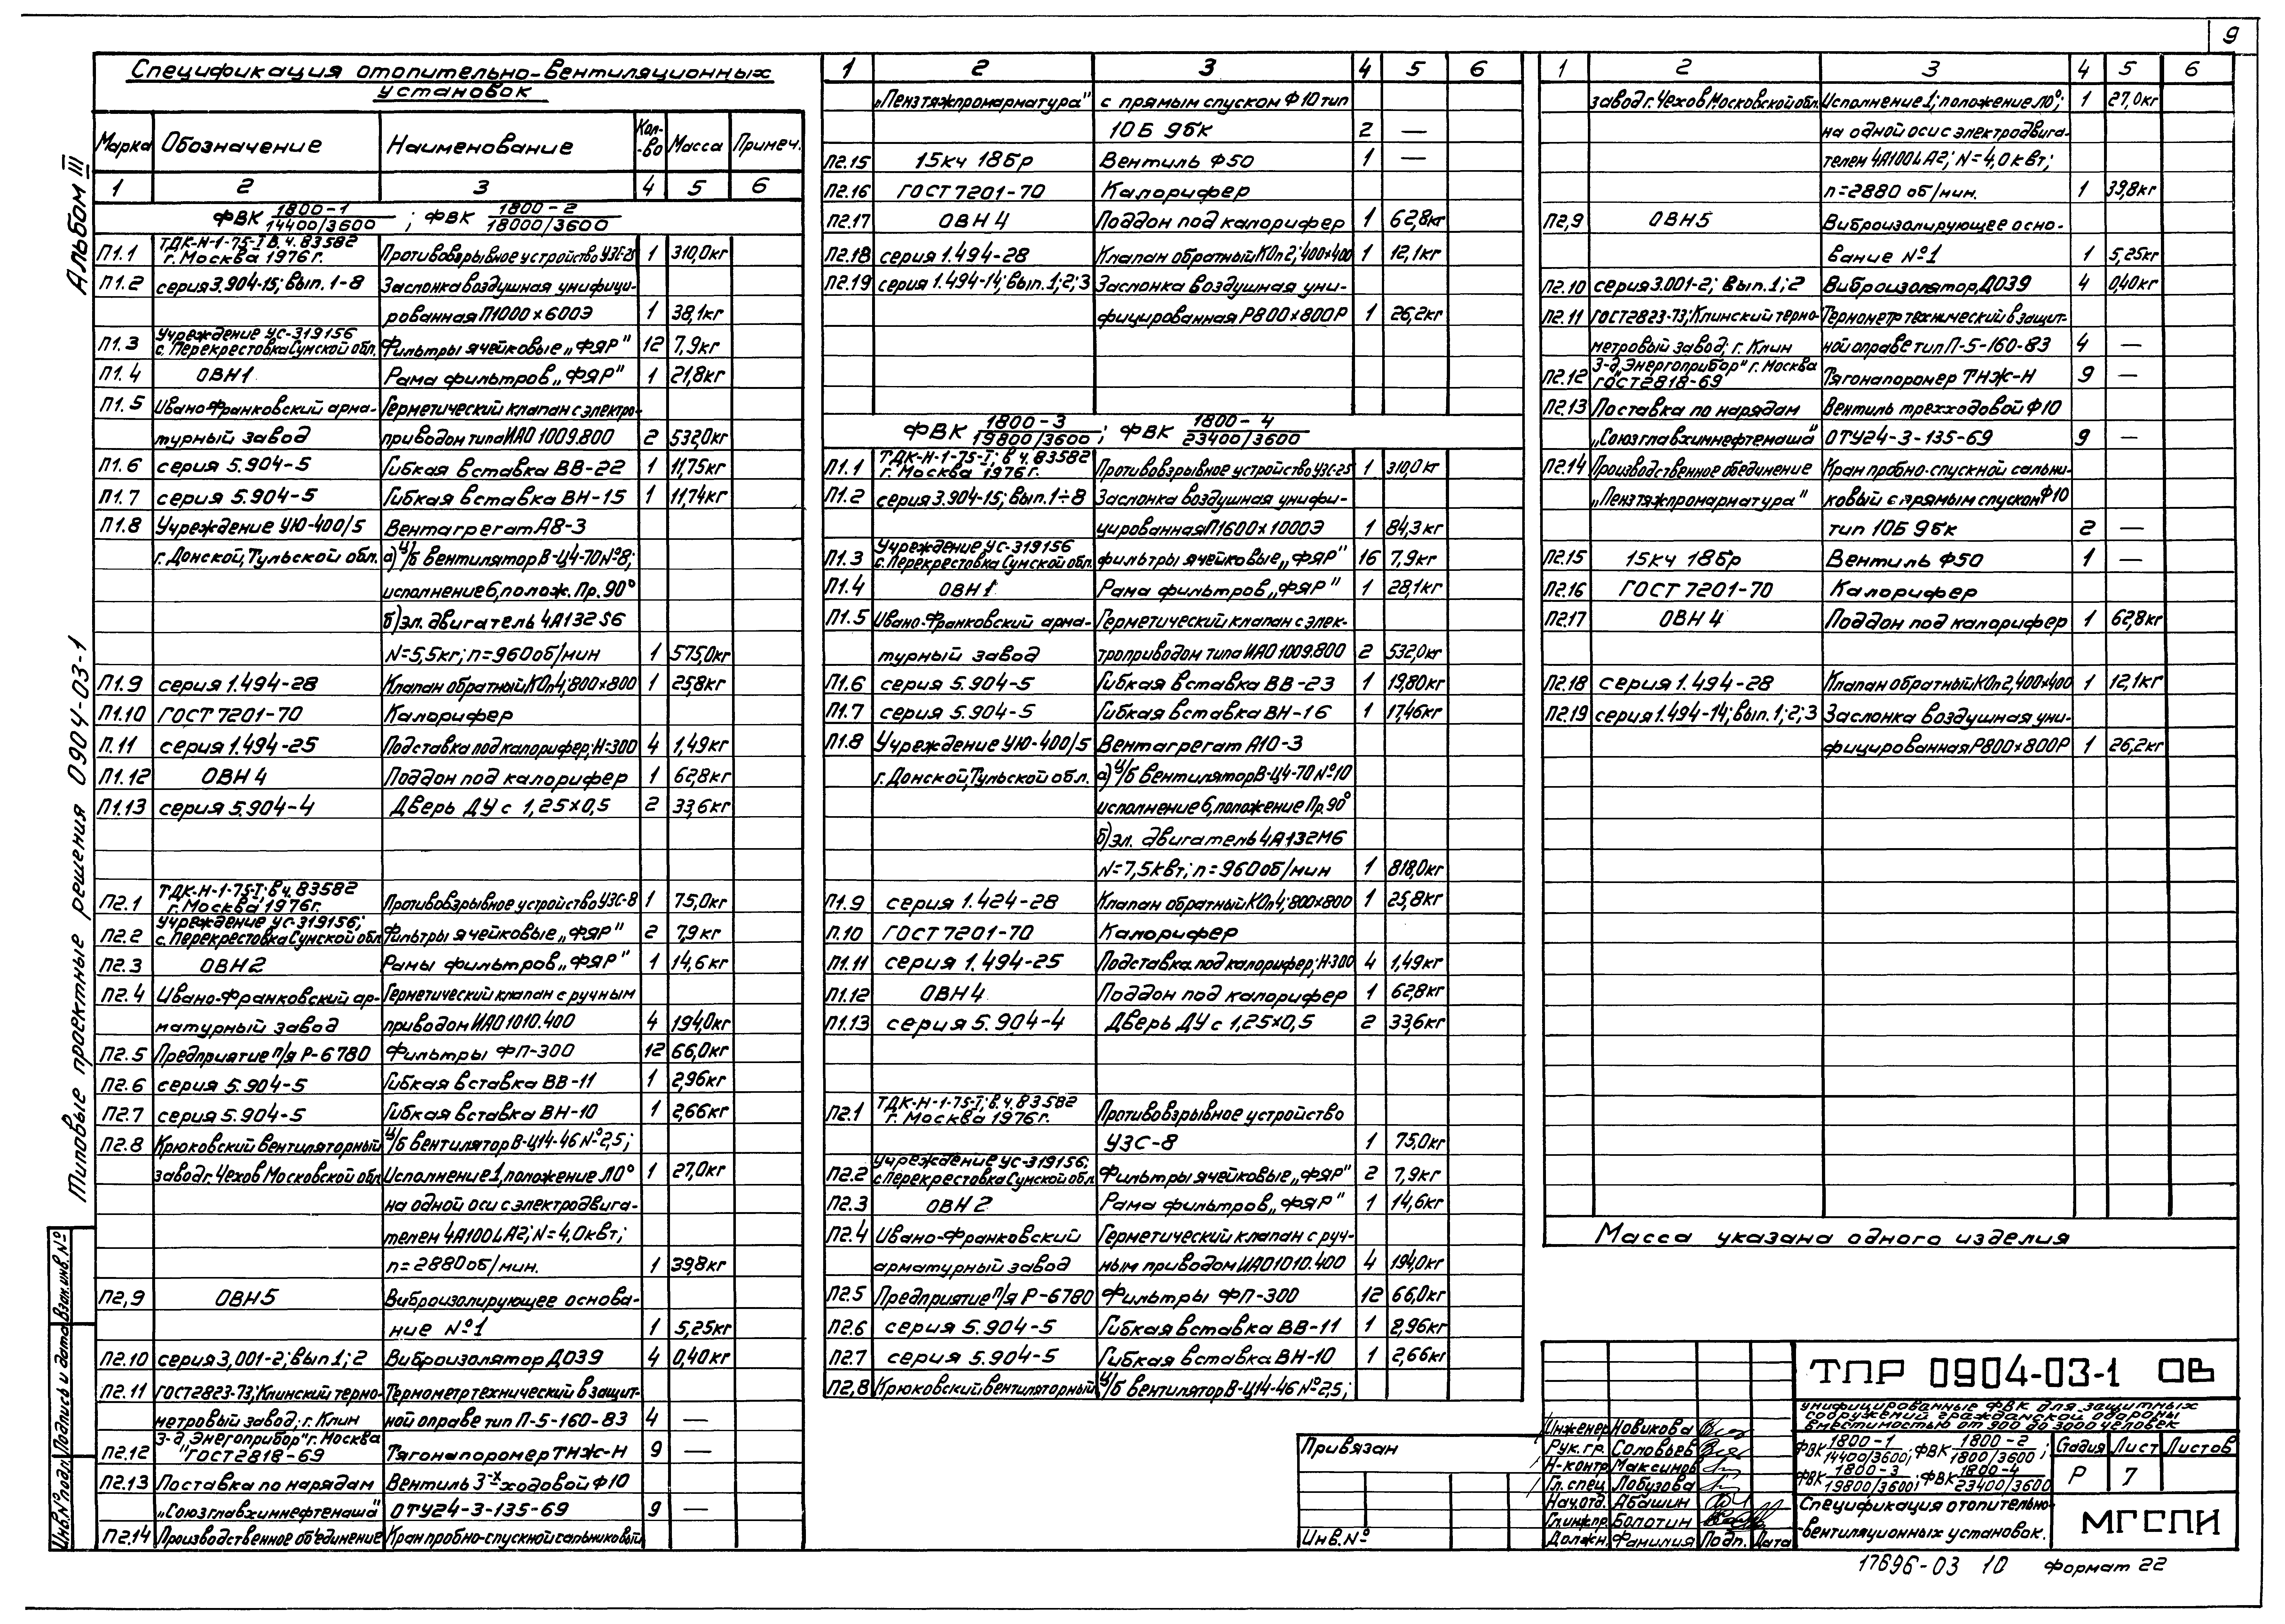 9
Альбом III
Типовые проектные решения 0904-03-1
Инв.№ подл. Подпись и дата Взам.инв.№
Спецификация отопительно-вентиляционных
установок
Марка Обозначение Наименование Кол-во Масса Примеч.
1 2 3 4 5 6
ФВК 1800-1/14400/3600 ; ФВК 1800-2/18000/3600
П1.1 ТДК-Н-1-75-I в.ч. 83582 г. Москва 1976г. Противовзрывное устройство УЗС-25 1 310,0кг
П1.2 серия 3.904-15; вып. 1-8 Заслонка воздушная унифици-
рованная П1000×600Э 1 38,1кг
П1.3 Учреждение УС-319156 с. Перекрестовка Сумской обл. Фильтры ячейковые „ФЯР" 12 7,9кг
П1.4 ОВН1 Рама фильтров „ФЯР" 1 21,8кг
П1.5 Ивано-Франковский арма- Герметический клапан с электро-
турный завод приводом типа ИАО 1009.800 2 532,0кг
П1.6 серия 5.904-5 Гибкая вставка ВВ-22 1 11,75кг
П1.7 серия 5.904-5 Гибкая вставка ВН-15 1 11,74кг
П1.8 Учреждение УЮ-400/5 Вентагрегат А8-3
г. Донской, Тульской обл. а) ц/б вентилятор В-Ц4-70 №8;
исполнение 6, полож. Пр. 90°
б) эл. двигатель 4А132S6
N=5,5кг; n=960 об/мин 1 575,0кг
П1.9 серия 1.494-28 Клапан обратный КОп4; 800×800 1 25,8кг
П1.10 ГОСТ 7201-70 Калорифер
П.11 серия 1.494-25 Подставка под калорифер; Н-300 4 1,49кг
П1.12 ОВН 4 Поддон под калорифер 1 62,8кг
П1.13 серия 5.904-4 Дверь ДУ с 1,25×0,5 2 33,6кг
П2.1 ТДК-Н-1-75-I; в.ч. 83582 г. Москва 1976г. Противовзрывное устройство УЗС-8 1 75,0кг
П2.2 Учреждение УС-319156; с. Перекрестовка Сумской обл. Фильтры ячейковые „ФЯР" 2 7,9кг
П2.3 ОВН2 Рамы фильтров „ФЯР" 1 14,6кг
П2.4 Ивано-Франковский ар- Герметический клапан с ручным
матурный завод приводом ИАО1010.400 4 194,0кг
П2.5 Предприятие п/я Р-6780 Фильтры ФП-300 12 66,0кг
П2.6 серия 5.904-5 Гибкая вставка ВВ-11 1 2,96кг
П2.7 серия 5.904-5 Гибкая вставка ВН-10 1 2,66кг
П2.8 Крюковский вентиляторный ц/б вентилятор В-Ц14-46 №2,5;
завод г. Чехов Московской обл. Исполнение 1, положение Л0° 1 27,0кг
на одной оси с электродвига-
телем 4А100LА2; N=4,0квт;
n=2880 об/мин. 1 39,8кг
П2,9 ОВН5 Виброизолирующее основа-
ние №1 1 5,25кг
П2.10 серия 3,001-2; вып 1; 2 Виброизолятор Д039 4 0,40кг
П2.11 ГОСТ2823-73; Клинский термо- Термометр технический в защит-
метровый завод; г. Клин ной оправе тип П-5-160-83 4 —
П2.12 З-д „Энергоприбор" г. Москва ГОСТ2818-69 Тягонапоромер ТНЖ-Н 9 —
П2.13 Поставка по нарядам Вентиль 3-х ходовой Ф10
„Союзглавхиннефтемаша" ОТУ24-3-135-69 9 —
П2.14 Производственное объединение Кран пробно-спускной сальниковый
1 2 3 4 5 6
„Пензтяжпромарматура" с прямым спуском Ф10 тип
10Б 9бк 2 —
П2.15 15кч 18бр Вентиль Ф50 1 —
П2.16 ГОСТ 7201-70 Калорифер
П2.17 ОВН 4 Поддон под калорифер 1 62,8кг
П2.18 серия 1.494-28 Клапан обратный КОп 2; 400×400 1 12,1кг
П2.19 серия 1.494-14; вып. 1; 2; 3 Заслонка воздушная уни-
фицированная Р800×800Р 1 26,2кг
ФВК 1800-3/19800/3600 ; ФВК 1800-4/23400/3600
П1.1 ТДК-Н-1-75-I; в ч. 83582 г. Москва 1976г. Противовзрывное устройство УЗС-25 1 310,0 кг
П1.2 серия 3.904-15; вып. 1÷8 Заслонка воздушная унифи-
цированная П1600×1000Э 1 84,3кг
П1.3 Учреждение УС-319156 с. Перекрестовка Сумской обл. Фильтры ячейковые „ФЯР" 16 7,9кг
П1.4 ОВН1 Рама фильтров „ФЯР" 1 28,1кг
П1.5 Ивано-Франковский арма- Герметический клапан с элек-
турный завод троприводом типа ИАО 1009.800 2 532,0кг
П1.6 серия 5.904-5 Гибкая вставка ВВ-23 1 19,80кг
П1.7 серия 5.904-5 Гибкая вставка ВН-16 1 17,46кг
П1.8 Учреждение УЮ-400/5 Вентагрегат А10-3
г. Донской, Тульской обл. а) ц/б вентилятор В-Ц4-70 №10
исполнение 6, положение Пр. 90°
б) эл. двигатель 4А132М6
N=7,5квт; n=960 об/мин 1 818,0кг
П1.9 серия 1.424-28 Клапан обратный КОп4; 800×800 1 25,8кг
П.10 ГОСТ 7201-70 Калорифер
П1.11 серия 1.494-25 Подставка под калорифер; Н-300 4 1,49кг
П1.12 ОВН4 Поддон под калорифер 1 62,8кг
П1.13 серия 5.904-4 Дверь ДУ с 1,25×0,5 2 33,6кг
П2.1 ТДК-Н-1-75-I; в.ч. 83582 г. Москва 1976г. Противовзрывное устройство
УЗС-8 1 75,0кг
П2.2 Учреждение УС-319156; с Перекрестовка Сумской обл Фильтры ячейковые „ФЯР" 2 7,9кг
П2.3 ОВН 2 Рама фильтров „ФЯР" 1 14,6кг
П2.4 Ивано-Франковский Герметический клапан с руч-
арматурный завод ным приводом ИАО1010.400 4 194,0кг
П2.5 Предприятие п/я Р-6780 Фильтры ФП-300 12 66,0кг
П2.6 серия 5.904-5 Гибкая вставка ВВ-11 1 2,96кг
П2.7 серия 5.904-5 Гибкая вставка ВН-10 1 2,66кг
П2,8 Крюковский вентиляторный ц/б вентилятор В-Ц14-46 №2,5;
1 2 3 4 5 6
завод г. Чехов Московской обл. Исполнение 1; положение Л0°; 1 27,0кг
на одной оси с электродвига-
телем 4А100LА2; N=4,0квт;
n=2880 об/мин. 1 39,8кг
П2,9 ОВН5 Виброизолирующее осно-
вание №1 1 5,25кг
П2.10 серия 3.001-2; вып. 1; 2 Виброизолятор Д039 4 0,40кг
П2.11 ГОСТ2823-73; Клинский термо- Термометр технический в защит-
метровый завод; г. Клин ной оправе тип П-5-160-83 4 —
П2.12 З-д „Энергоприбор" г. Москва ГОСТ2818-69 Тягонапоромер ТНЖ-Н 9 —
П2.13 Поставка по нарядам Вентиль трехходовой Ф10
„Союзглавхиннефтемаша" ОТУ24-3-135-69 9 —
П2.14 Производственное обединение Кран пробно-спускной сальни-
„Пензтяжпромарматура" ковый с прямым спуском Ф10
тип 10Б 9бк 2 —
П2.15 15кч 18бр Вентиль Ф50 1 —
П2.16 ГОСТ 7201-70 Калорифер
П2.17 ОВН 4 Поддон под калорифер 1 62,8кг
П2.18 серия 1.494-28 Клапан обратный КОп 2, 400×400 1 12,1кг
П2.19 серия 1.494-14; вып. 1; 2; 3 Заслонка воздушная уни-
фицированная Р800×800Р 1 26,2кг
Масса указана одного изделия
Привязан
Инв.№
ТПР 0904-03-1 ОВ
унифицированные ФВК для защитных
сооружений гражданской обороны
вместимостью от 900 до 3000 человек
Инженер Новикова
Рук.гр. Соловьев
Н-контр Максимов
Гл.спец Лобузова
Нач.отд. Абашин
Гл.инж.пр. Болотин
Должн. Фамилия Подп. Дата
ФВК 1800-1/14400/3600; ФВК 1800-2/1800/3600;
ФВК 1800-3/19800/3600; ФВК 1800-4/23400/3600
Стадия Лист Листов
Р 7
Спецификация отопительно-
-вентиляционных установок.
МГСПИ
17696-03 10 Формат 22